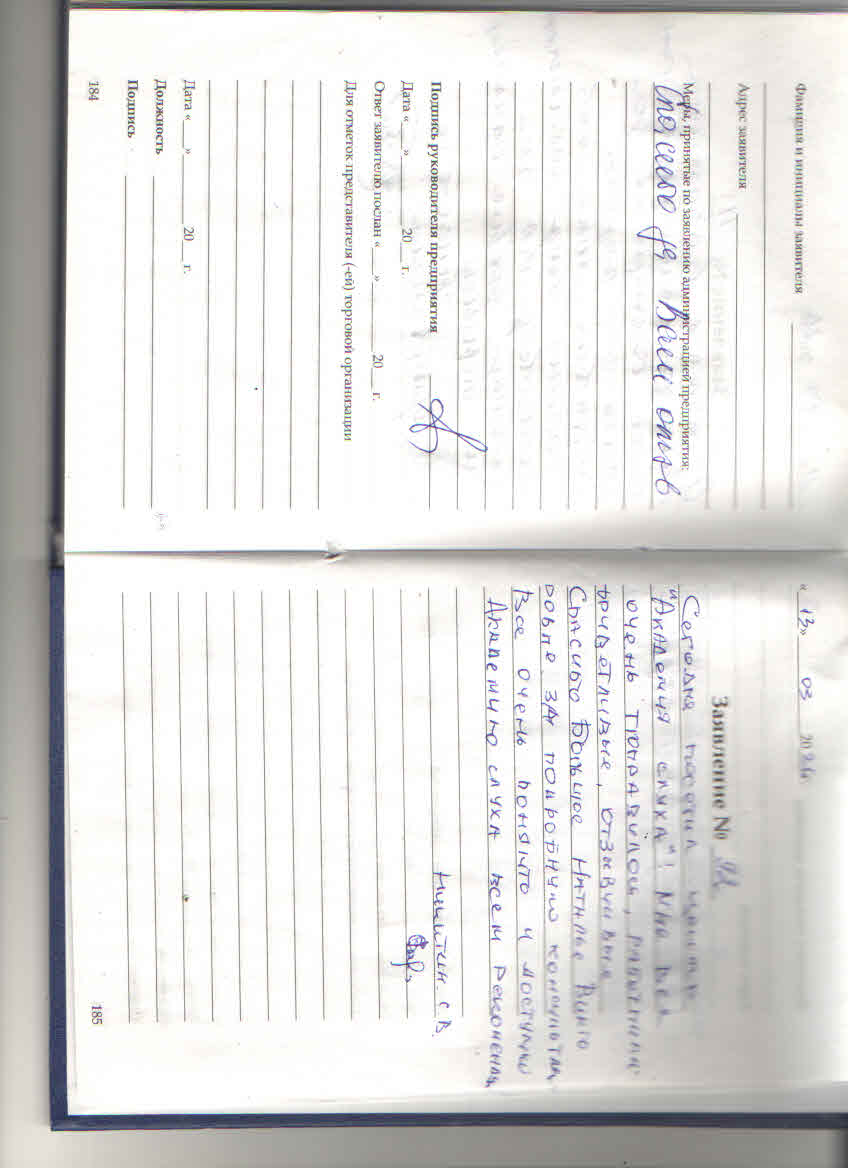 Фамилия и инициалы заявителя
Адрес заявителя
Меры, принятые по заявлению администрацией предприятия:
Спасибо за Ваш отзыв
Подпись руководителя предприятия
Дата «     »           20     г.
Ответ заявителю послан «     »           20     г.
Для отметок представителя (-ей) торговой организации
Дата «     »           20     г.
Должность
Подпись
184
« 13 » 03 20
Заявление № 92
Сегодня посетил центр
"Академия слуха"! Мне все
очень понравилось, работники
приветливые, отзывчивые
Спасибо Большое Наталье
за подробную
Все очень понятно и доступно
Академию слуха всем
Никитин С.В.
185